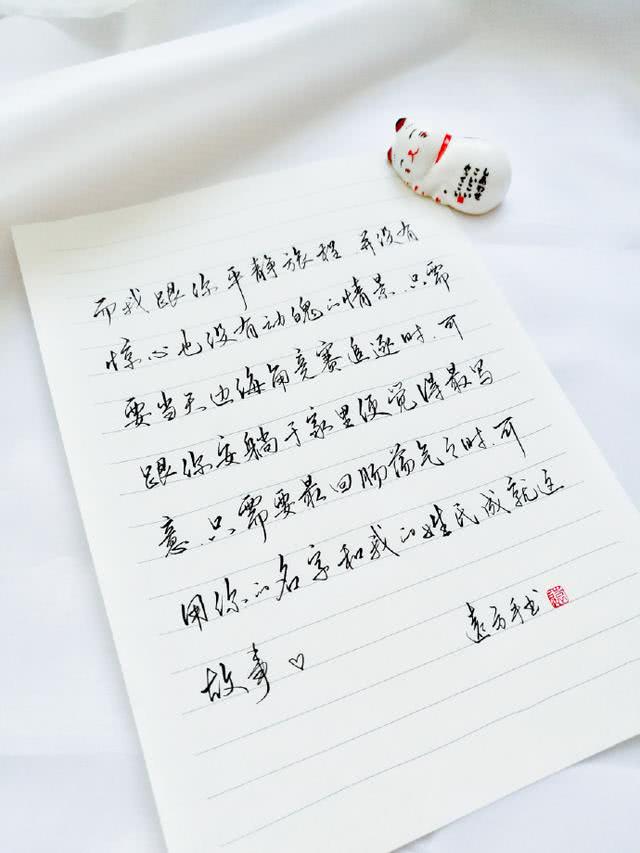 而我跟你平静旅程.并没有
惊心也没有动魄的情景.只需
要当天边海角竞赛追逐时.可
跟你安躺于家里便觉得最写
意.只需要最回肠荡气之时.可
用你的名字和我的姓氏成就这
故事♡
远方手书